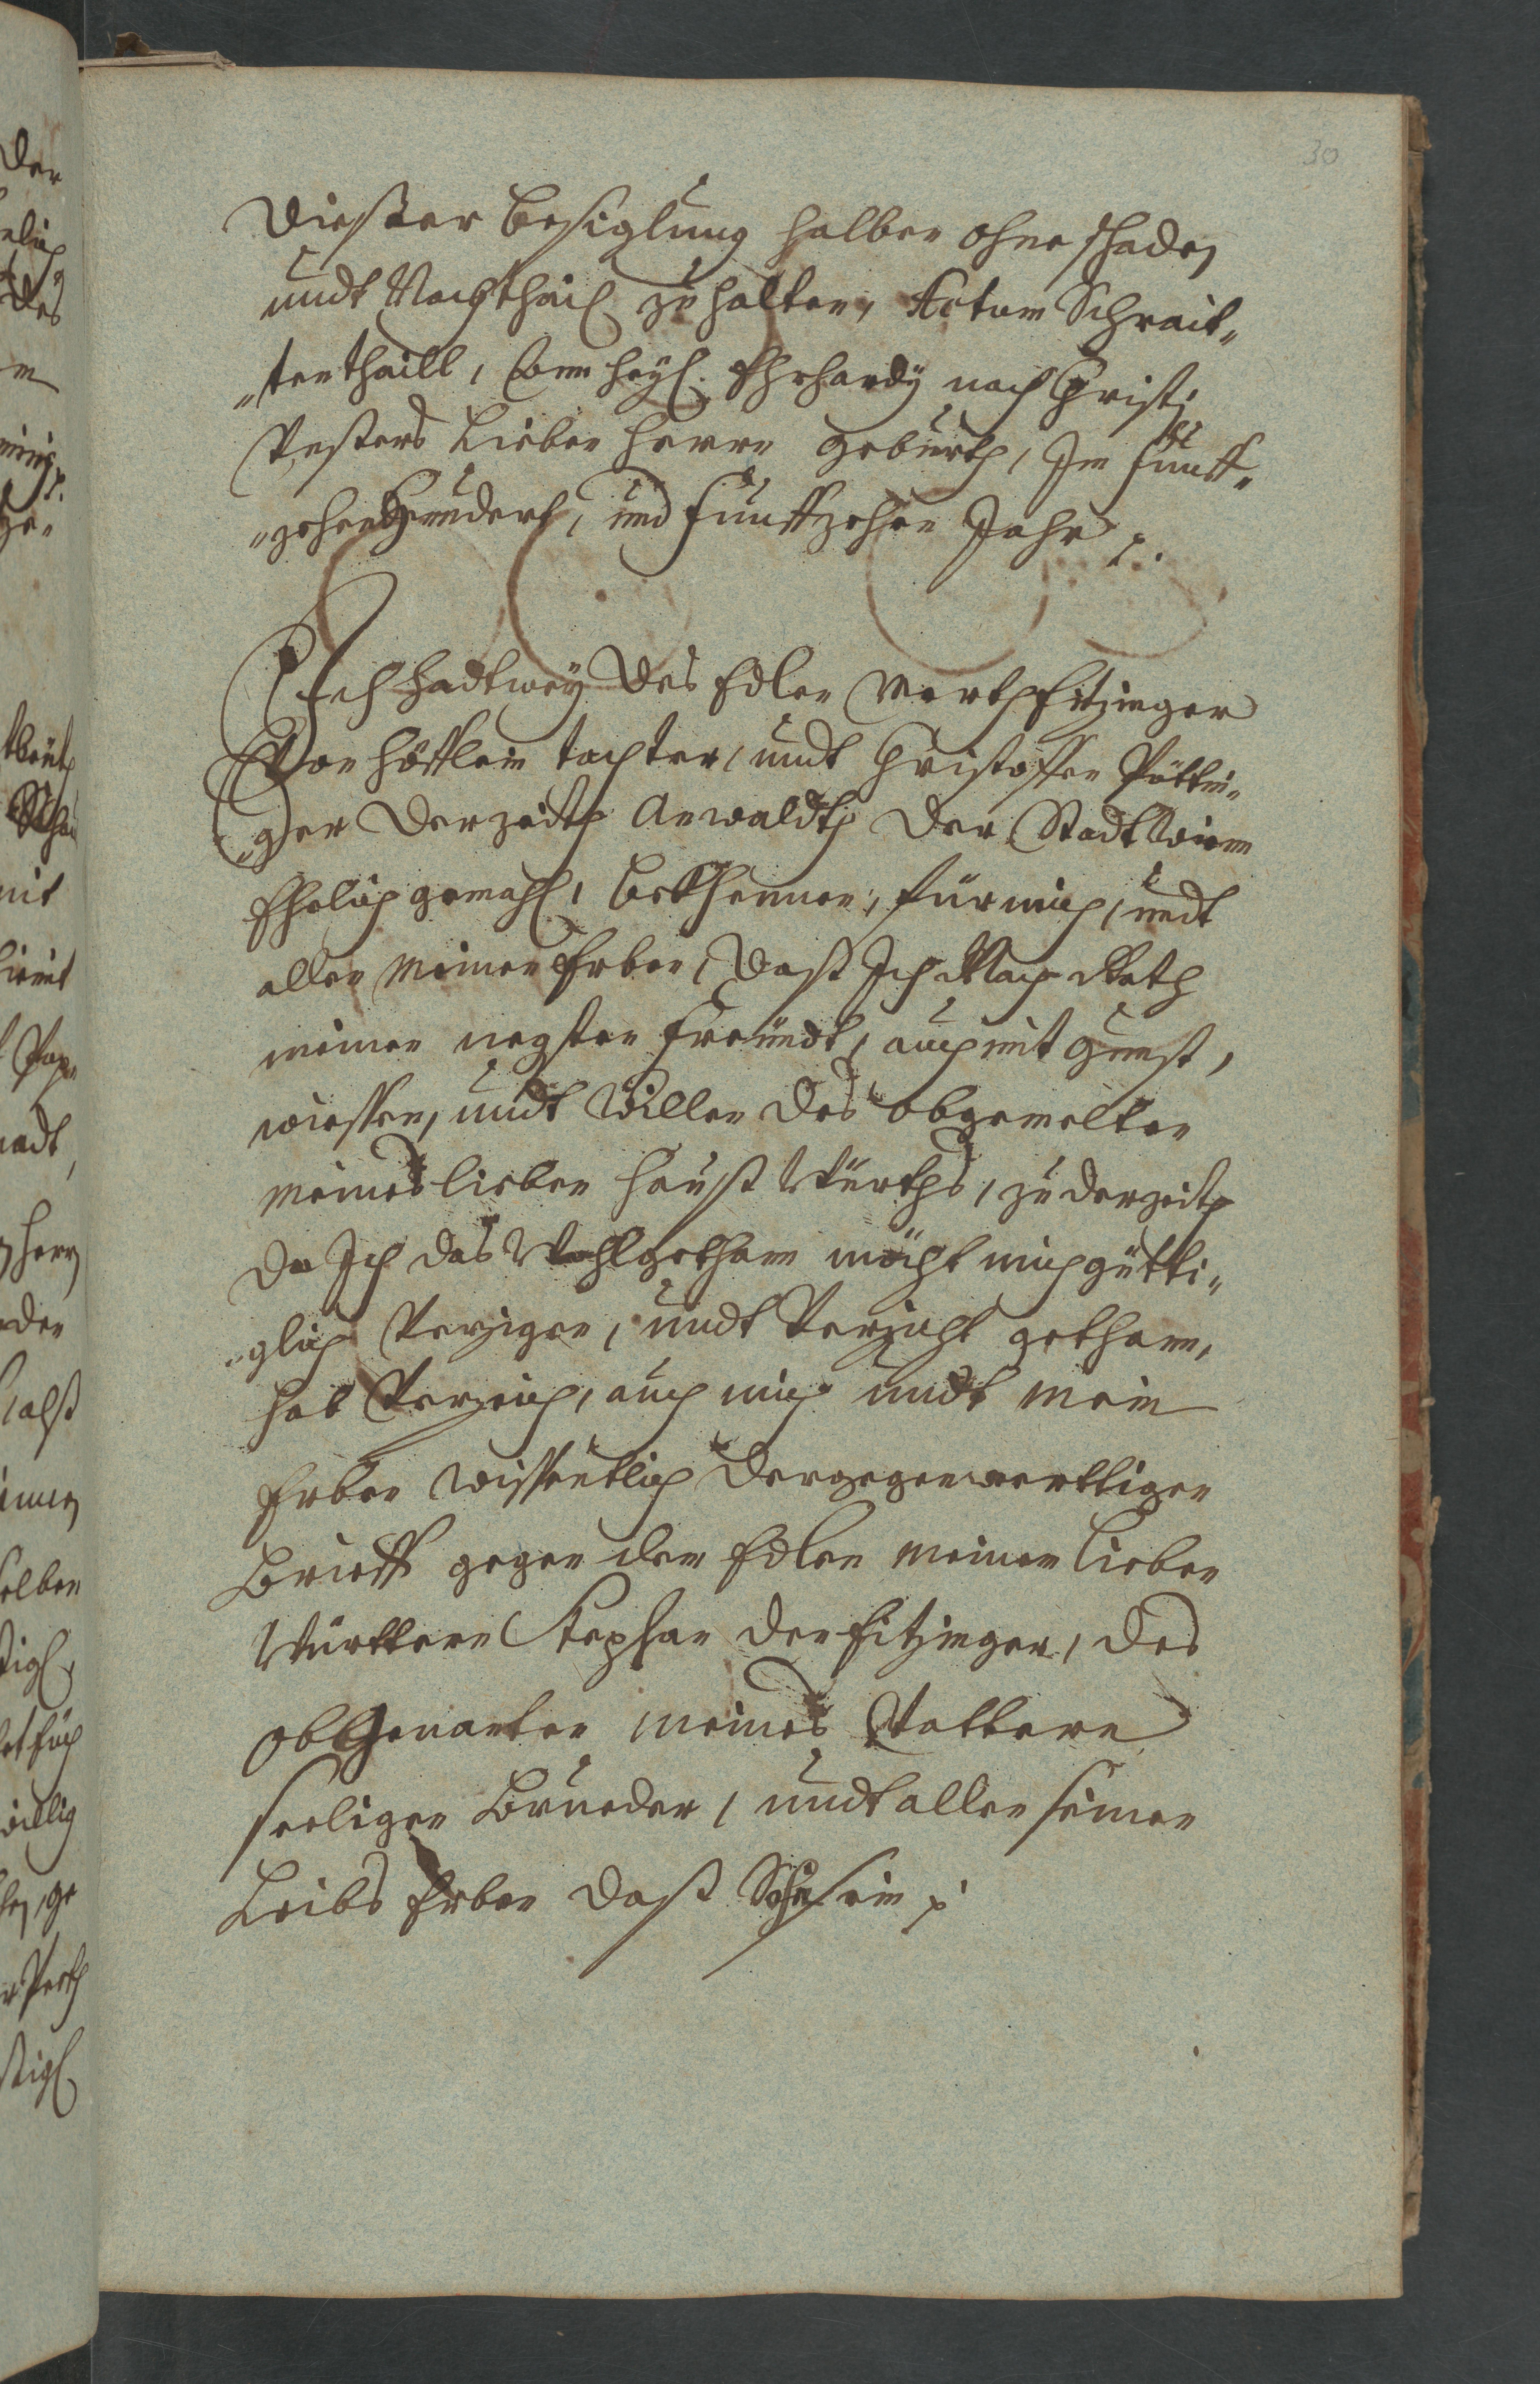 30
Dießer besiglung halber ohne schaden
undt Nachthail zu halten, Actum Schrait„
„tenthaill, Am heyl: Ehrhardy nach Christi
Vnsters Lieben Herrn geburth, Im fünff„
„zehenhundert, und fünffzehen Jahr p.
Ich Hadtwey des Edlen Marth Fitzinger
Von Höfflein tochter, undt Christoffen Pöttin„
„ger derzeith Anwaldth der Stadt Wienn
Ehelich gemahl, bekhennen, für mich, undt
allen meinen Erben, daß Ich Nach Rath
meiner negsten Freundt, auch mit gunst,
wiessen, undt Willen des obgemelten
meines lieben Hauß Würths, zu derzeith
da Ich das Wohlgethann möcht mich gütti„
„glich Verzigen, undt Verzücht gethann,
hab Verzeich, auch mich undt mein
Erben wissentlich der gegenwerttigen
Brieff gegen dem Edlen meinem lieben
Vürttern Stephan den Fitzinger, des
obbgenanten meines Vattern
seeligen Brueder, undt allen seinen
Leibs Erben daß Sohn sein p.